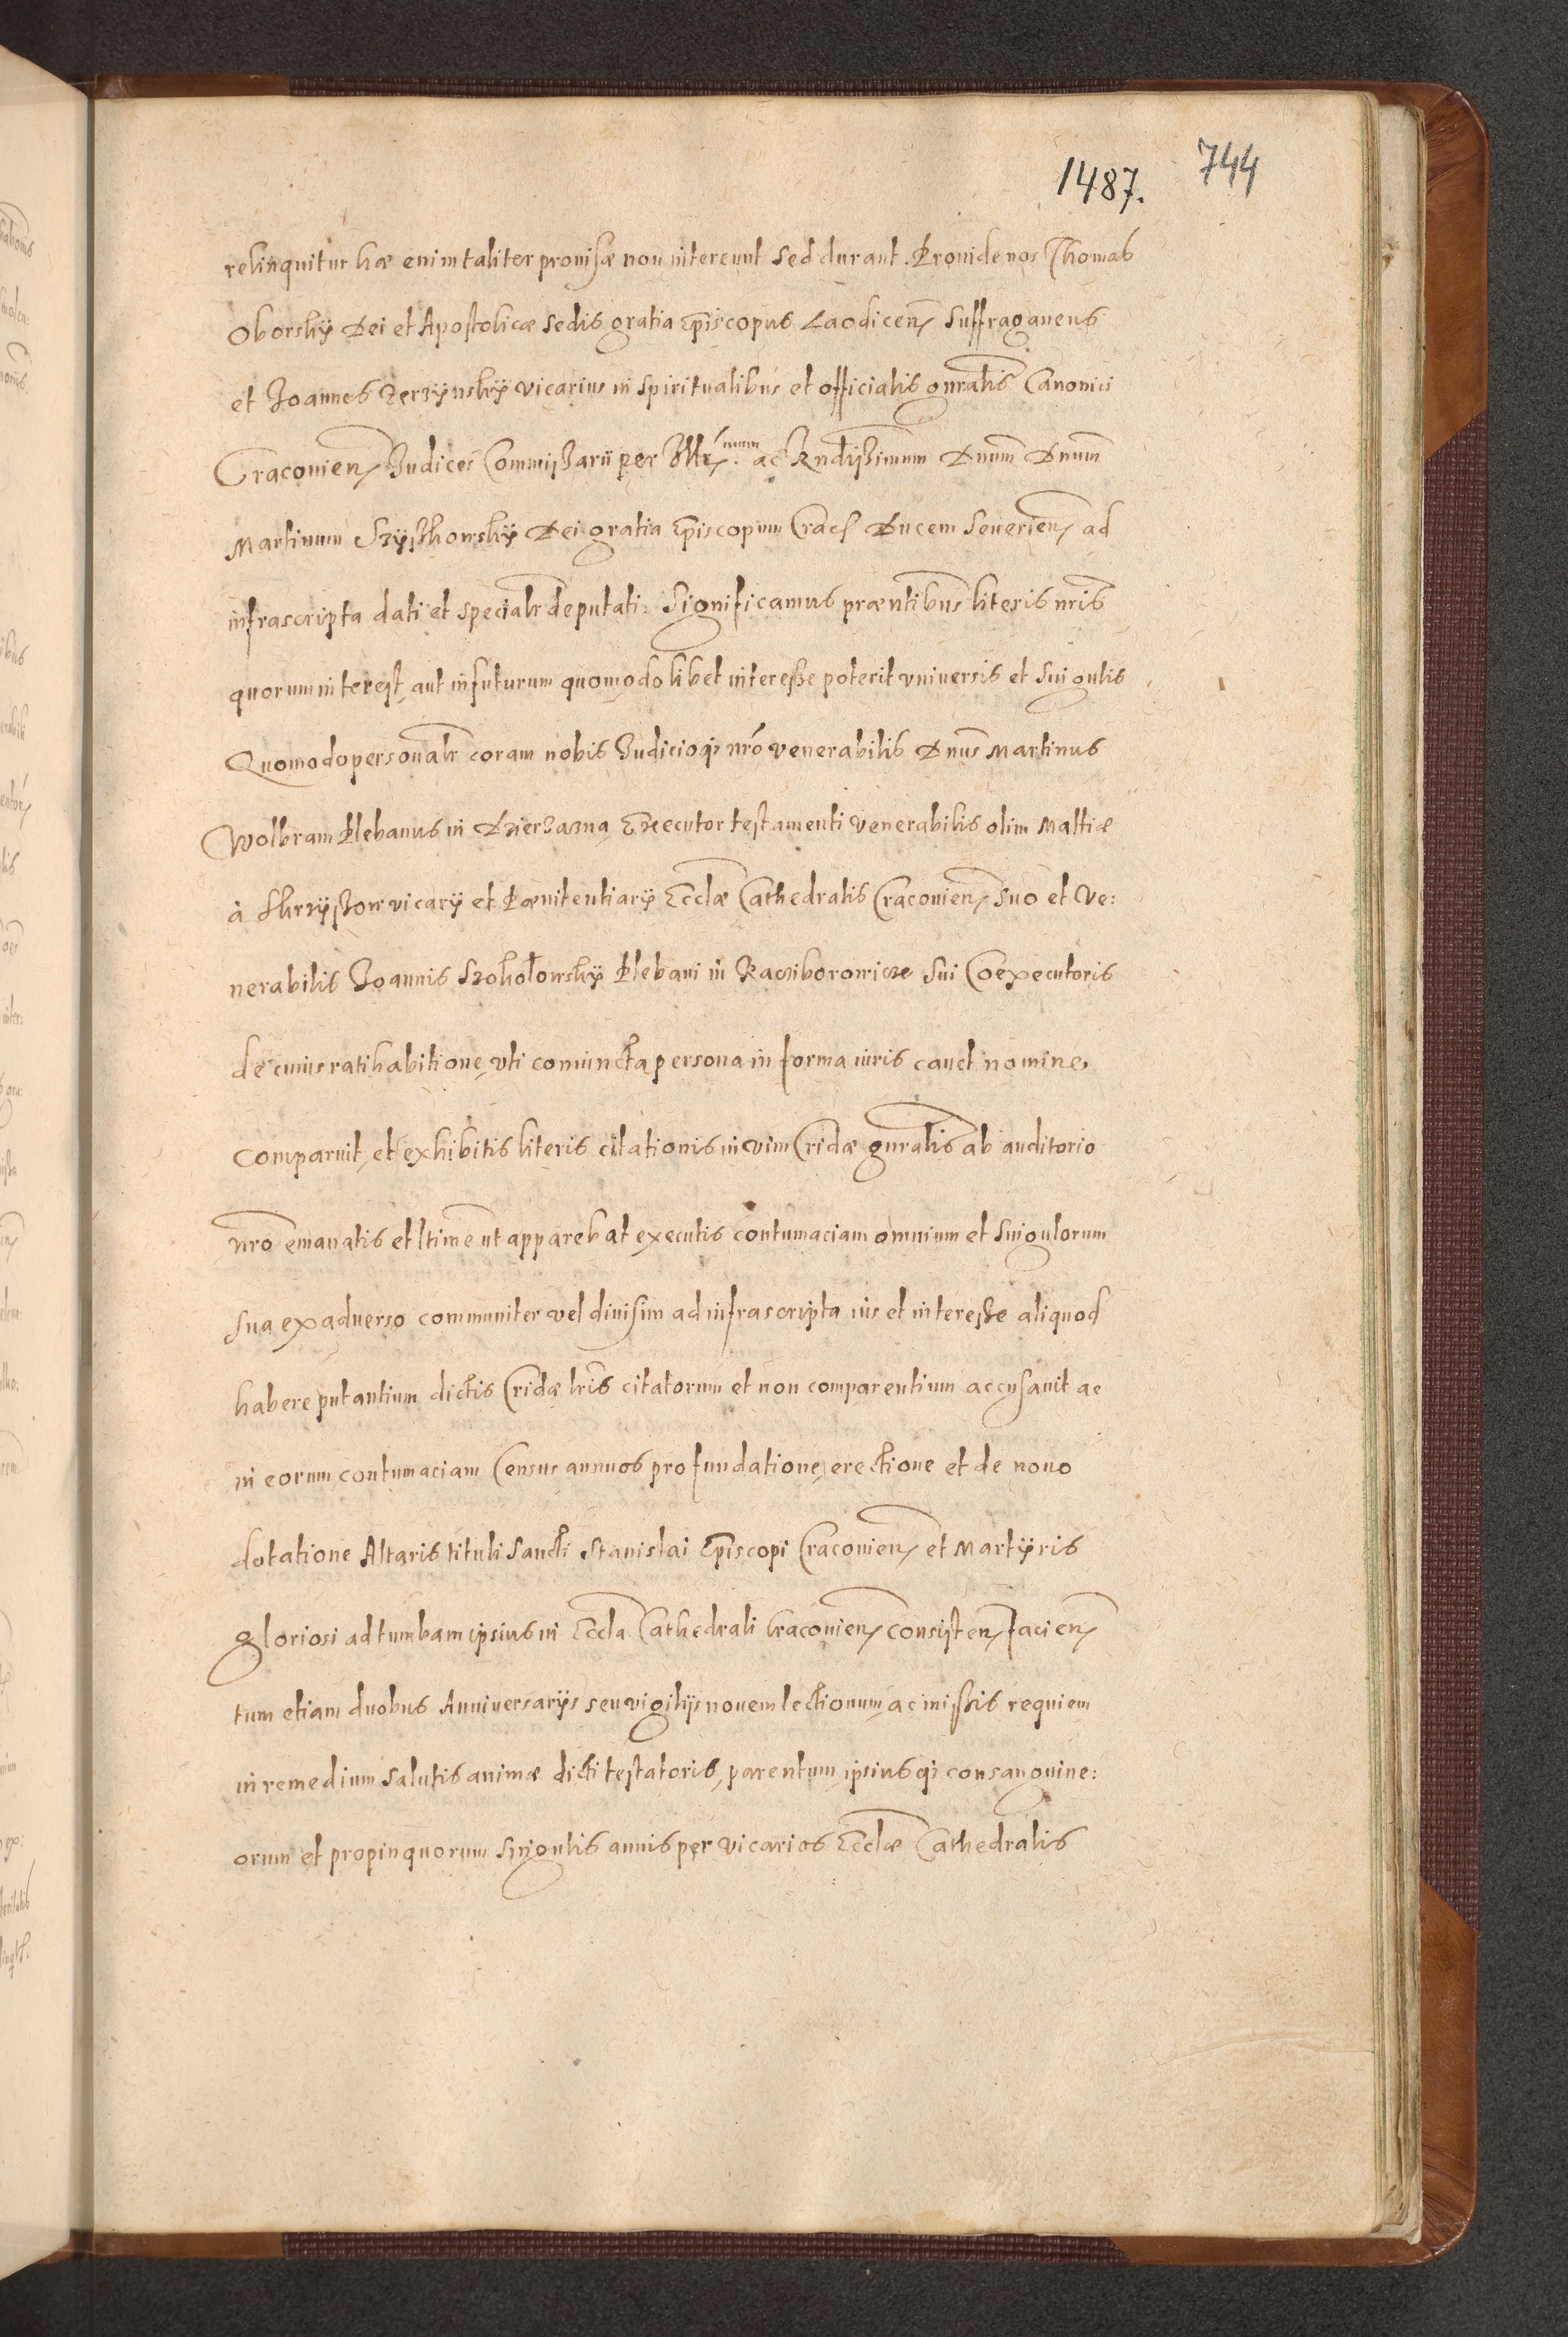 1487. 744
relinquitur hæ enim taliter prouisæ non intereunt sed durant. Proinde nos Thomas
Oborsky Dei et Apostolicæ Sedis gratia Episcopus Laodicen Suffraganeus
et Joannes Zerzynsky vicarius in spiritualibus et officialis gnralis Canonici
Cracouien Judices Commissarii per Illr.mum ac Rndissimum Dnum Dnum
Martinum Szyszkowsky Dei gratia Episcopum Crac Ducem Seuerien ad
infrascripta dati et specialr deputati. Significamus præntibus literis nris
quorum interest, aut in futurum quomodolibet interesse poterit vniuersis et singulis
Quomodo personalr coram nobis Judicioq nro venerabilis Dnus Martinus
Wolbram Plebanus in Dzierzazna Executor testamenti venerabilis olim Mattiæ
à Skrzyszow vicary et Pœnitentiary Ecclæ Cathedralis Cracouien suo et Ve:
nerabilis Joannis Szokołowsky Plebani in Raciborowice sui Coexecutoris
de cuius ratihabitione, vti coniuncta persona in forma iuris cauet nomine
comparuit, et exhibitis literis citationis in vim Cridæ gnralis ab auditorio
nro emanatis et ltime ut apparebat executis contumaciam omnium et singulorum
sua ex aduerso communiter vel diuisim ad infrascripta ius et interesse aliquod
habere putantium dictis Cridæ lris citatorum et non comparentium accusauit ac
in eorum contumaciam Census annuos pro fundatione, erectione et de nouo
dotatione Altaris tituli Sancti Stanislai Episcopi Cracouien et Martyris
gloriosi ad tumbam ipsius in Eccla Cathedrali Cracouien consisten facien
tum etiam duobus Anniuersarys seu vigilys nouem lectionum, ac missis requiem
in remedium salutis animæ dicti testatoris, parentum ipsiusq consanguine:
orum et propinquorum singulis annis per vicarios Ecclæ Cathedralis